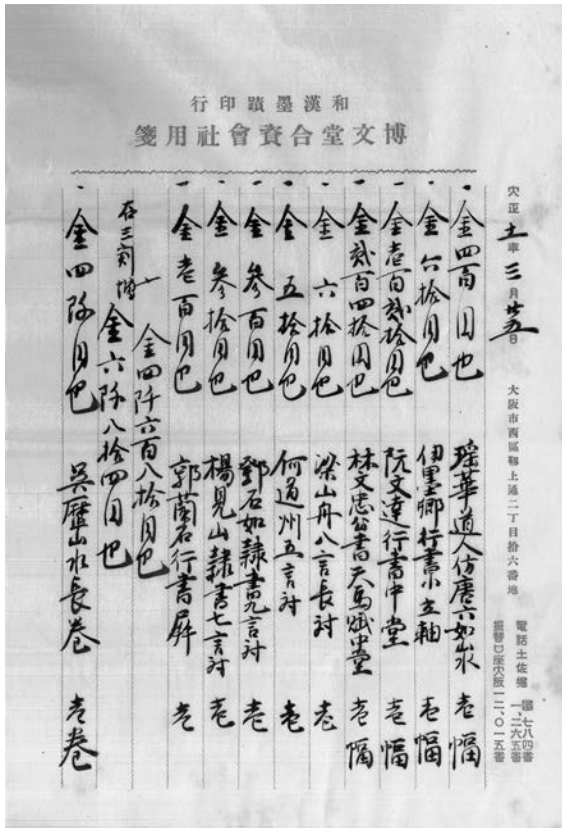 和漢墨蹟印行
博文堂合資會社用箋
大正十一年三月廿五日 大阪市西區靱上通二丁目拾六番地
電話土佐堀 七八四番
一、二六五番
振替口座大阪一二、〇一五番
一 金四百円也 瑶華道人仿唐六如山水 壱幅
一 金六拾円也 伊墨卿行書小立軸 壱幅
一 金壱百貳拾円也 阮文達行書中堂 壱幅
一 金貳百四拾円也 林文忠公書天馬賦中堂 壱幅
一 金六拾円也 梁山舟八言長対 壱
一 金五拾円也 何道州五言対 壱
一 金參百円也 鄧石如隷書九言対 壱
一 金參拾円也 楊見山隷書七言対 壱
一 金壱百円也 郭蘭石行書屏 壱
一 金四阡六百八拾円也
右三割増 金六阡八拾四円也
一 金四阡円也 呉歴山水長巻 壱巻